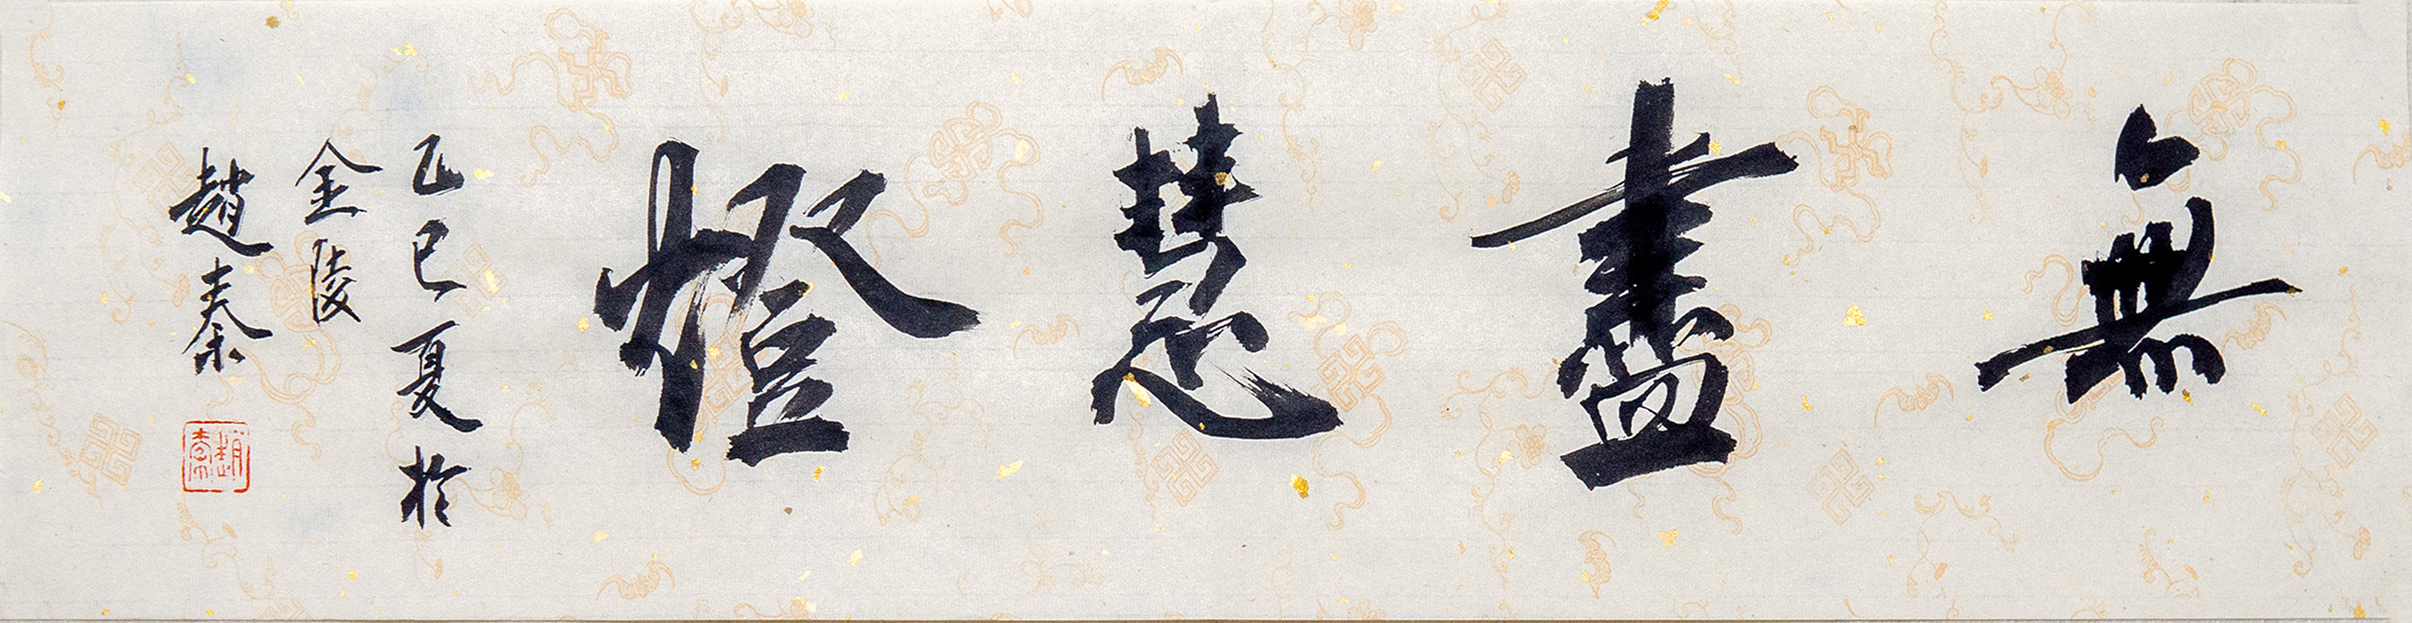 無盡慧燈
乙巳夏於
金陵
趙秦
趙秦